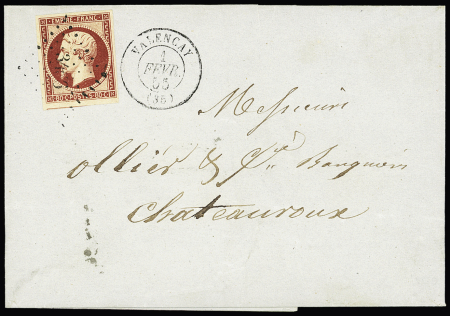 EMPIRE FRANC.
80 C POSTES 80 C
VALENCAY
1
FEVR.
55
(35)
Messieurs
Ollier & Cie Banquiers
Chateauroux